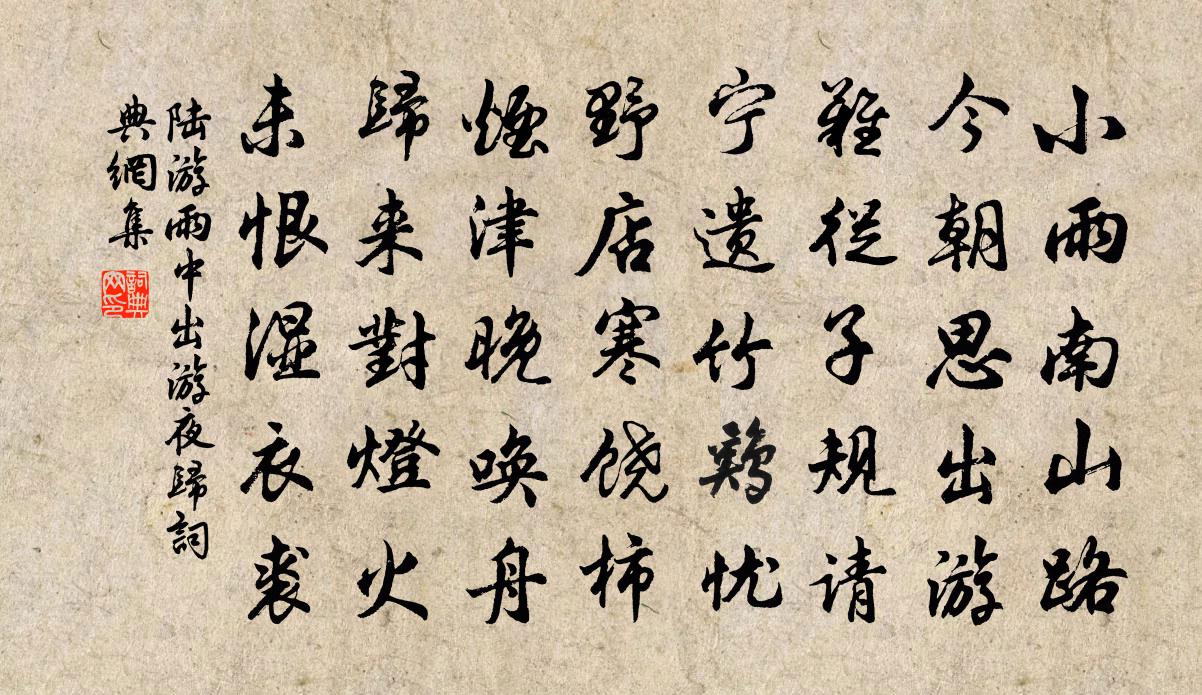 小雨南山路
今朝思出游
难從子規请
宁遗竹鷄忧
野店寒饶柿
煙津晚唤舟
歸来對燈火
未恨湿衣裘
陆游雨中出游夜歸詞
典網集
詞典网印